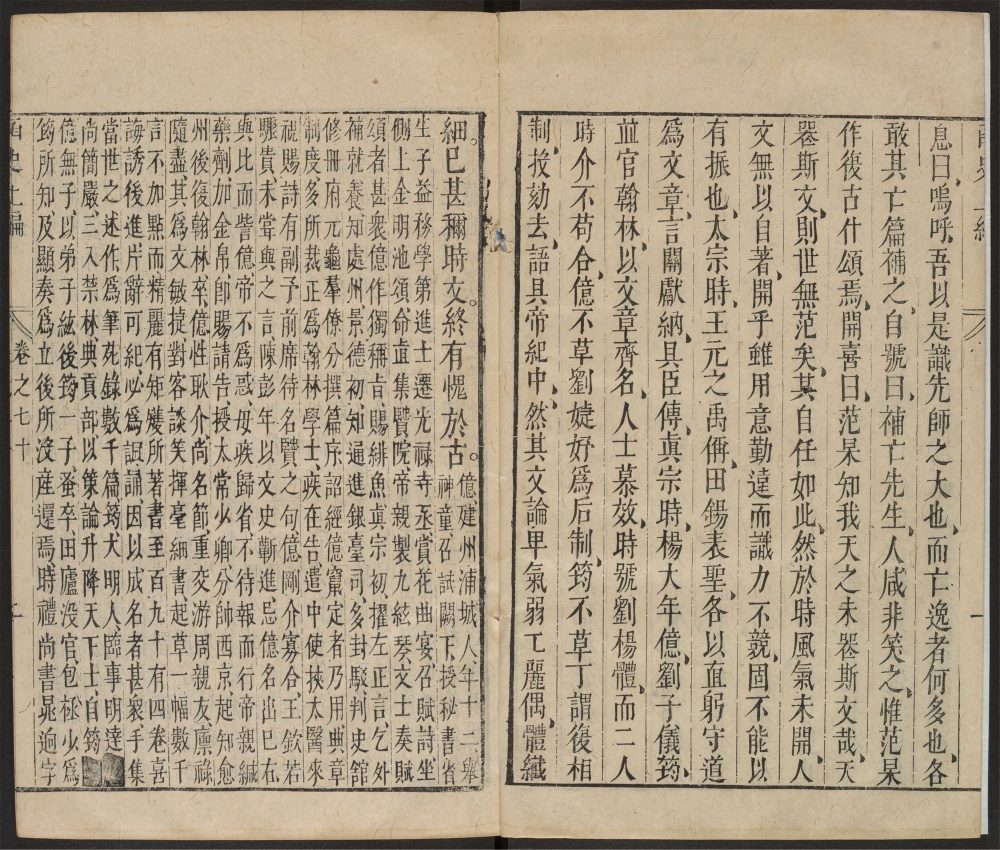 息曰嗚呼吾以是識先師之大也而亡逸者何多也各
敢其亡篇補之自號曰補亡先生人咸非笑之惟范杲
作復古什頌焉開喜曰范杲知我天之未喪斯文哉天
喪斯文則世無范矣其自任如此然於時風氣未開人
文無以自著開乎雖用意勤違而識力不競固不能以
有振也太宗時王元之禹偁田錫表聖各以直躬守道
為文章言關獻納具臣傳真宗時楊大年億劉子儀筠
並官翰林以文章齊名人士慕效時號劉楊體而二人
時介不苟合億不草劉婕妤為后制筠不草丁謂復相
制投劾去語具帝紀中然其文論卑氣弱工麗偶體纖
細已甚稱時文終有愧於古
億建州浦城人年十二舉
神童召試闕下授秘書省
生子益務學第進士遷光祿寺丞賞花曲宴召賦詩坐
側上金明池頌命直集賢院帝親製九絃琴文士奏賦
頌者甚衆億作獨稱旨賜緋魚真宗初擢左正言乞外
補就養知處州景德初知通進銀臺司多封駁判史館
修冊府元龜羣僚分撰篇序詔經億竄定者乃用典章
制度多所裁正為翰林學士疾在告遣中使挾太醫來
視賜詩有副予前席待名賢之句億剛介寡合王欽若
驟貴未嘗與之言陳彭年以文史蘄進忌億名出己右
與比而訾億帝不為惑毋疾歸省不待報而行帝親緘
藥劑加金帛即賜請告授太常少卿分師西京起知愈
州後復翰林卒億性耿介尚名節重交游周親友廩祿
隨盡其為文敏捷對客談笑揮毫細書起草一幅數千
言不加點而精麗有矩矱所著書至百九十有四卷喜
誨誘後進片辭可紀必為誦因以成名者甚衆手集
當世之述作為筆苑錄數千篇筠大明人臨事明達
尚簡嚴三入禁林典貢部以策論升降天下士自筠
億無子以弟子紘後筠一子蚤卒田廬沒官包拯少為
筠所知及顯奏為立後所沒産還焉時禮尚書晁逈字
函史上編
卷之七十